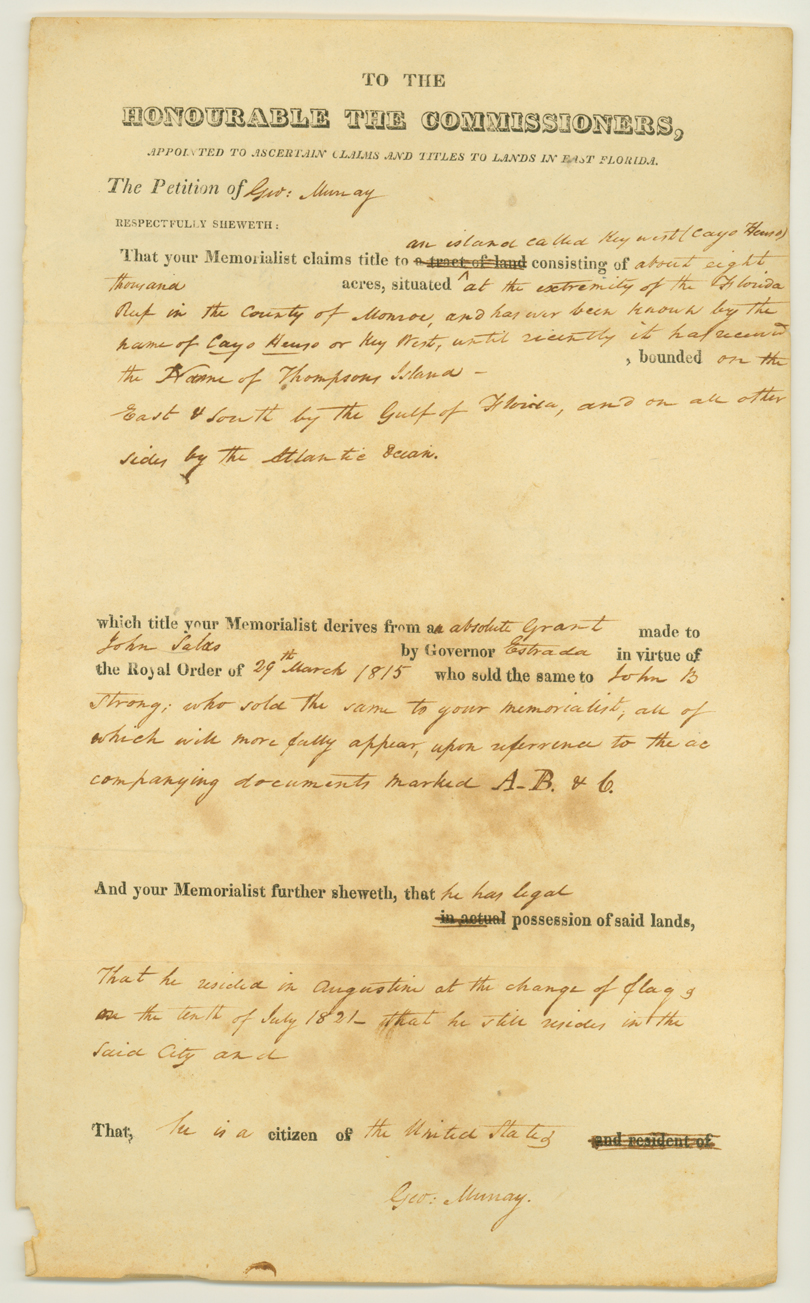 TO THE
HONOURABLE THE COMMISSIONERS,
APPOINTED TO ASCERTAIN CLAIMS AND TITLES TO LANDS IN EAST FLORIDA.
The Petition of Geo: Murray
RESPECTFULLY SHEWETH:
an island called Key west (Cayo Heuso)
That your Memorialist claims title to a tract of land consisting of about eight
thousand acres, situated ^at the extremity of the Florida
Reef in the County of Monroe, and has ever been known by the
name of Cayo Heuso or Key West, until recently it has received
the Name of Thompsons Island - , bounded on the
East & South by the Gulf of Florida, and on all other
sides by the Atlantic Ocean.
which title your Memorialist derives from an absolute Grant made to
John Salas by Governor Estrada in virtue of
the Royal Order of 29th March 1815 who sold the same to John B
Strong; who sold the same to your memorialist; all of
which will more fully appear, upon referrence to the ac
companying documents marked A-B. & C.
And your Memorialist further sheweth, that he has legal
in actual possession of said lands,
That he resided in Augustine at the change of flags
on the tenth of July 1821- that he still resides in the
Said City and
That, he is a citizen of the United States and resident of
Geo: Murray.